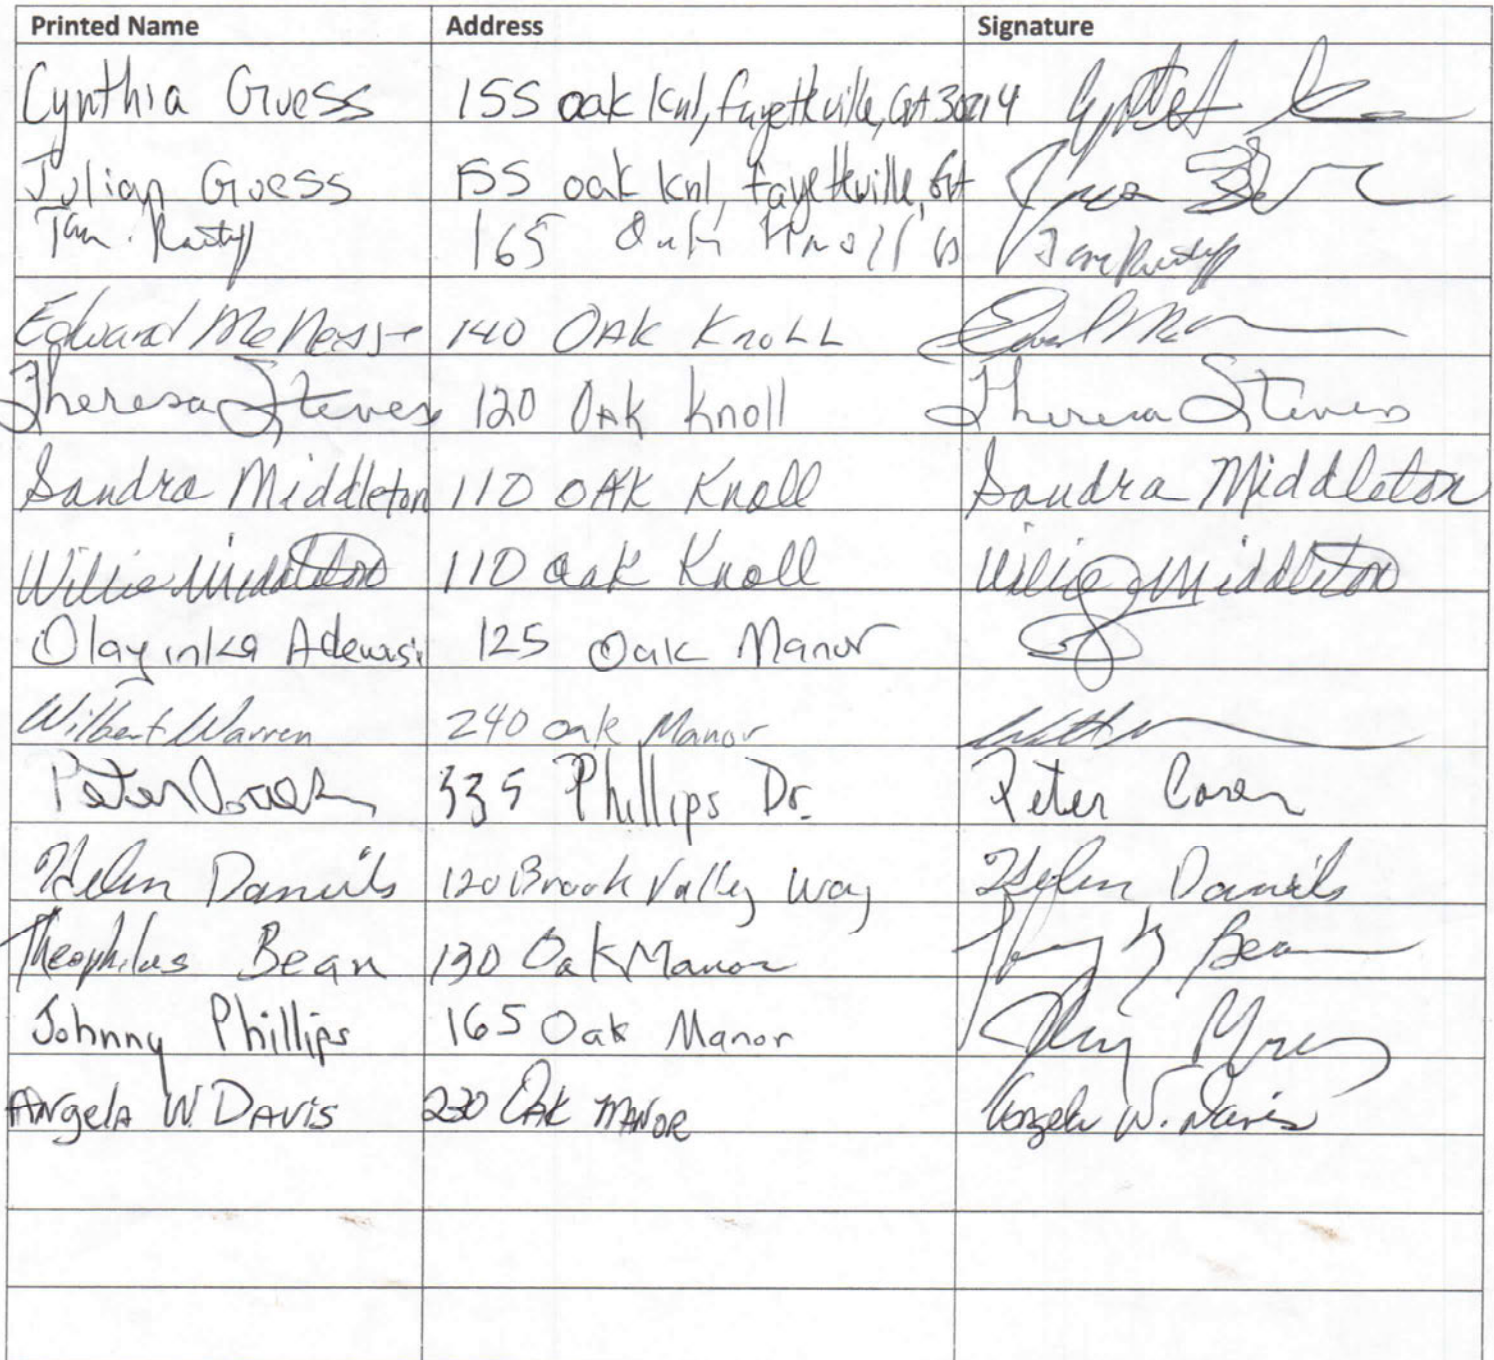 Printed Name Address Signature
Cynthia Guess 155 oak knl, fayetteville, GA 30214
Julian Guess 155 oak knl, fayetteville, GA
165 Oak Knoll
Edward 140 OAK KnoLL
Theresa Steves 120 OAK Knoll Theresa Steves
Sandra Middleton 110 OAK Knoll Sandra Middleton
Willie Middleton 110 Oak Knoll Willie Middleton
Olayinka 125 Oak Manor
Wilbert Warren 240 oak Manor
Peter 335 Phillips Dr. Peter
Helen Daniels 120 Brook Valley Way Helen Daniels
Theophilus Bean 130 Oak Manor Bean
Johnny Phillips 165 Oak Manor
Angela W. DAVIS 230 OAK MANOR Angela W. Davis